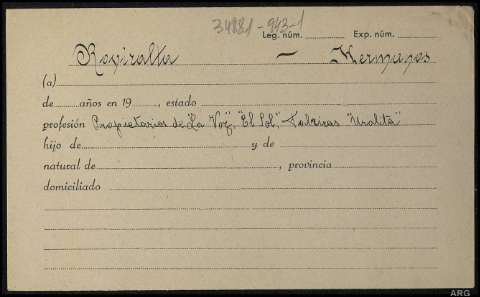 34881-943-1
Leg. núm. Exp. núm.
Roviralta - Hermanos
(a)
de años en 19 , estado
profesión Propietarios de "La Voz", "El Sol", - Fabricas "Uralita"
hijo de y de
natural de , provincia
domiciliado
ARG